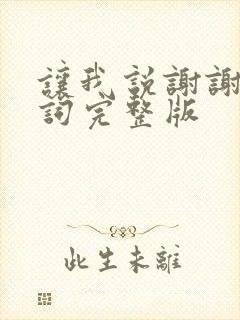 讓我説謝謝
詞完整版
此生未離